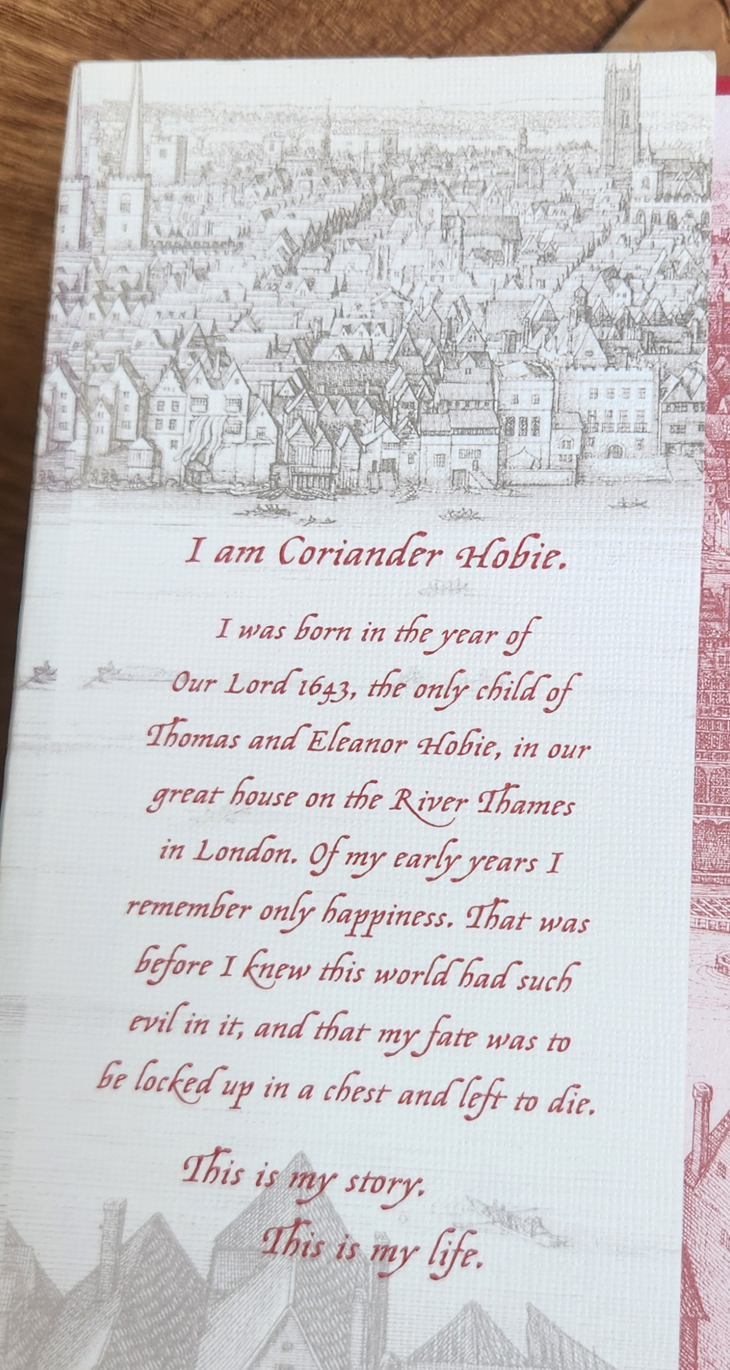 I am Coriander Hobie.
I was born in the year of
Our Lord 1643, the only child of
Thomas and Eleanor Hobie, in our
great house on the River Thames
in London. Of my early years I
remember only happiness. That was
before I knew this world had such
evil in it, and that my fate was to
be locked up in a chest and left to die.
This is my story.
This is my life.